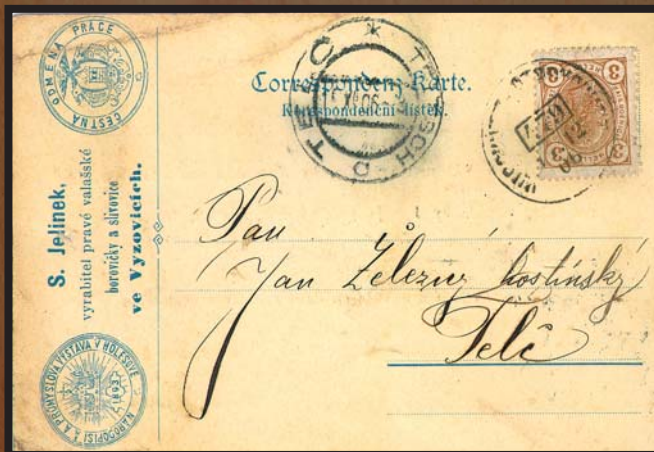 ČESTNÁ ODMĚNA PRÁCE
S. Jelinek,
vyrabitel pravé valašské
borovičky a slivovice
ve Vyzovicích.
NÁRODOPISÁ A PRŮMYSLOVÁ VÝSTAVA V HOLEŠOVĚ
1893
Correspondenz-Karte.
Korespondenční lístek.
TELČ * TELTSCH
06
3 3
3 3
Pan
Jan Železný hostinský
Telč